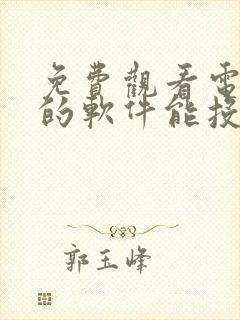 免費觀看電
的軟件能投
郭玉峰